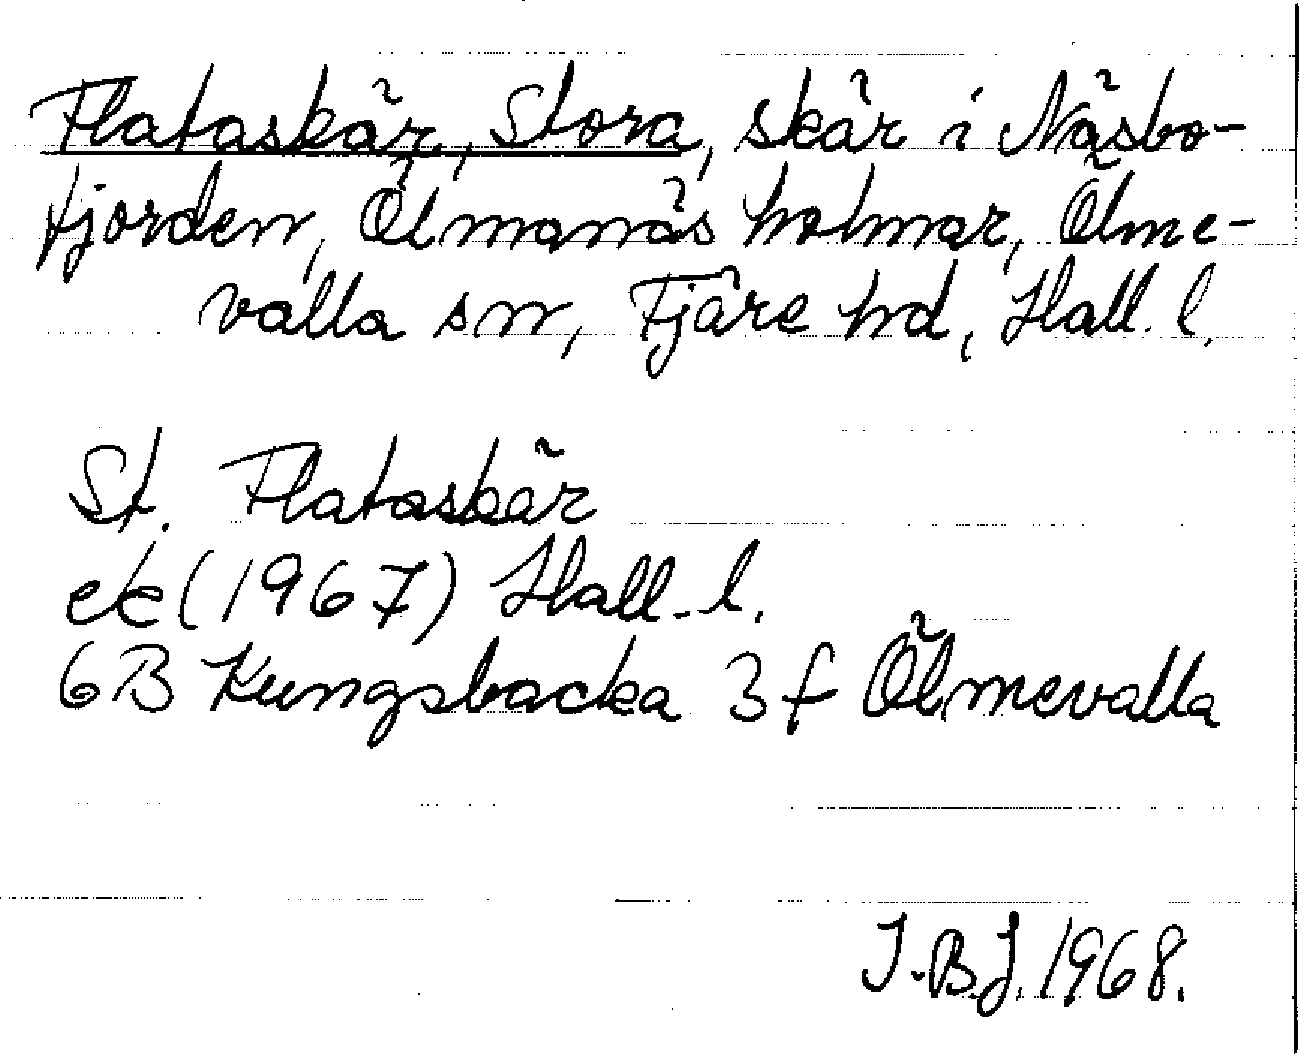 Flataskär, Stora, skär i Näsbo-
fjorden, Ölmanäs holmar, Ölme-
valla sn, Fjäre hd, Hall. l.
St. Flataskär
ek (1967) Hall. l.
6B Kungsbacka 3 f Ölmevalla
I.B.J. 1968.